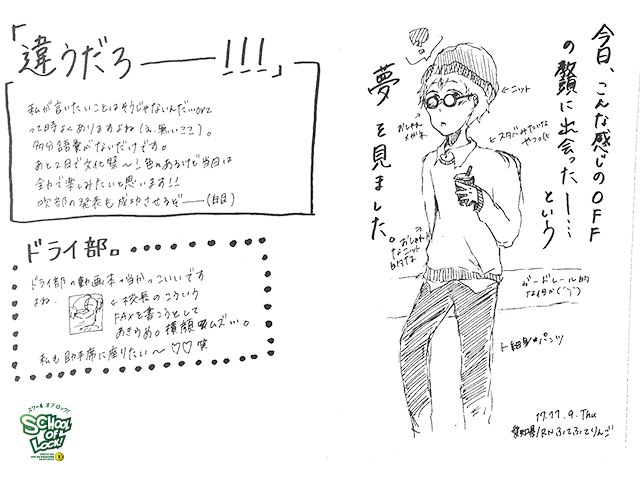 「違うだろーーー!!!」
私が言いたいことはそうじゃないんだ…orz
って時よくありますよね(え、無いここ)。
多分語彙がないだけです。
あと2日で文化祭〜!色々あるけど当日は
全力で楽しみたいと思います!!
吹部の発表も成功させるぞーー(白目)
ドライ部。
ドライ部の動画本当かっこいいです
よね。
←校長のこういう
FAXを書こうとして
あきらめ。横顔ムズ…。
私も助手席に座りたい〜♡♡笑
スクール オブ ロック!
SCHOOL
OF
LOCK!
今日、こんな感じのOFF
の教頭に出会ったー…
という
夢を見ました。
←ニット
おしゃれ
メガネ
←スタバみたいな
やつのに
おしゃれ
なニット
的な
ガードレール的
な何か(´`)
ト細身パンツ
17.11.9.Thu
愛知県/RNふてふてりんご